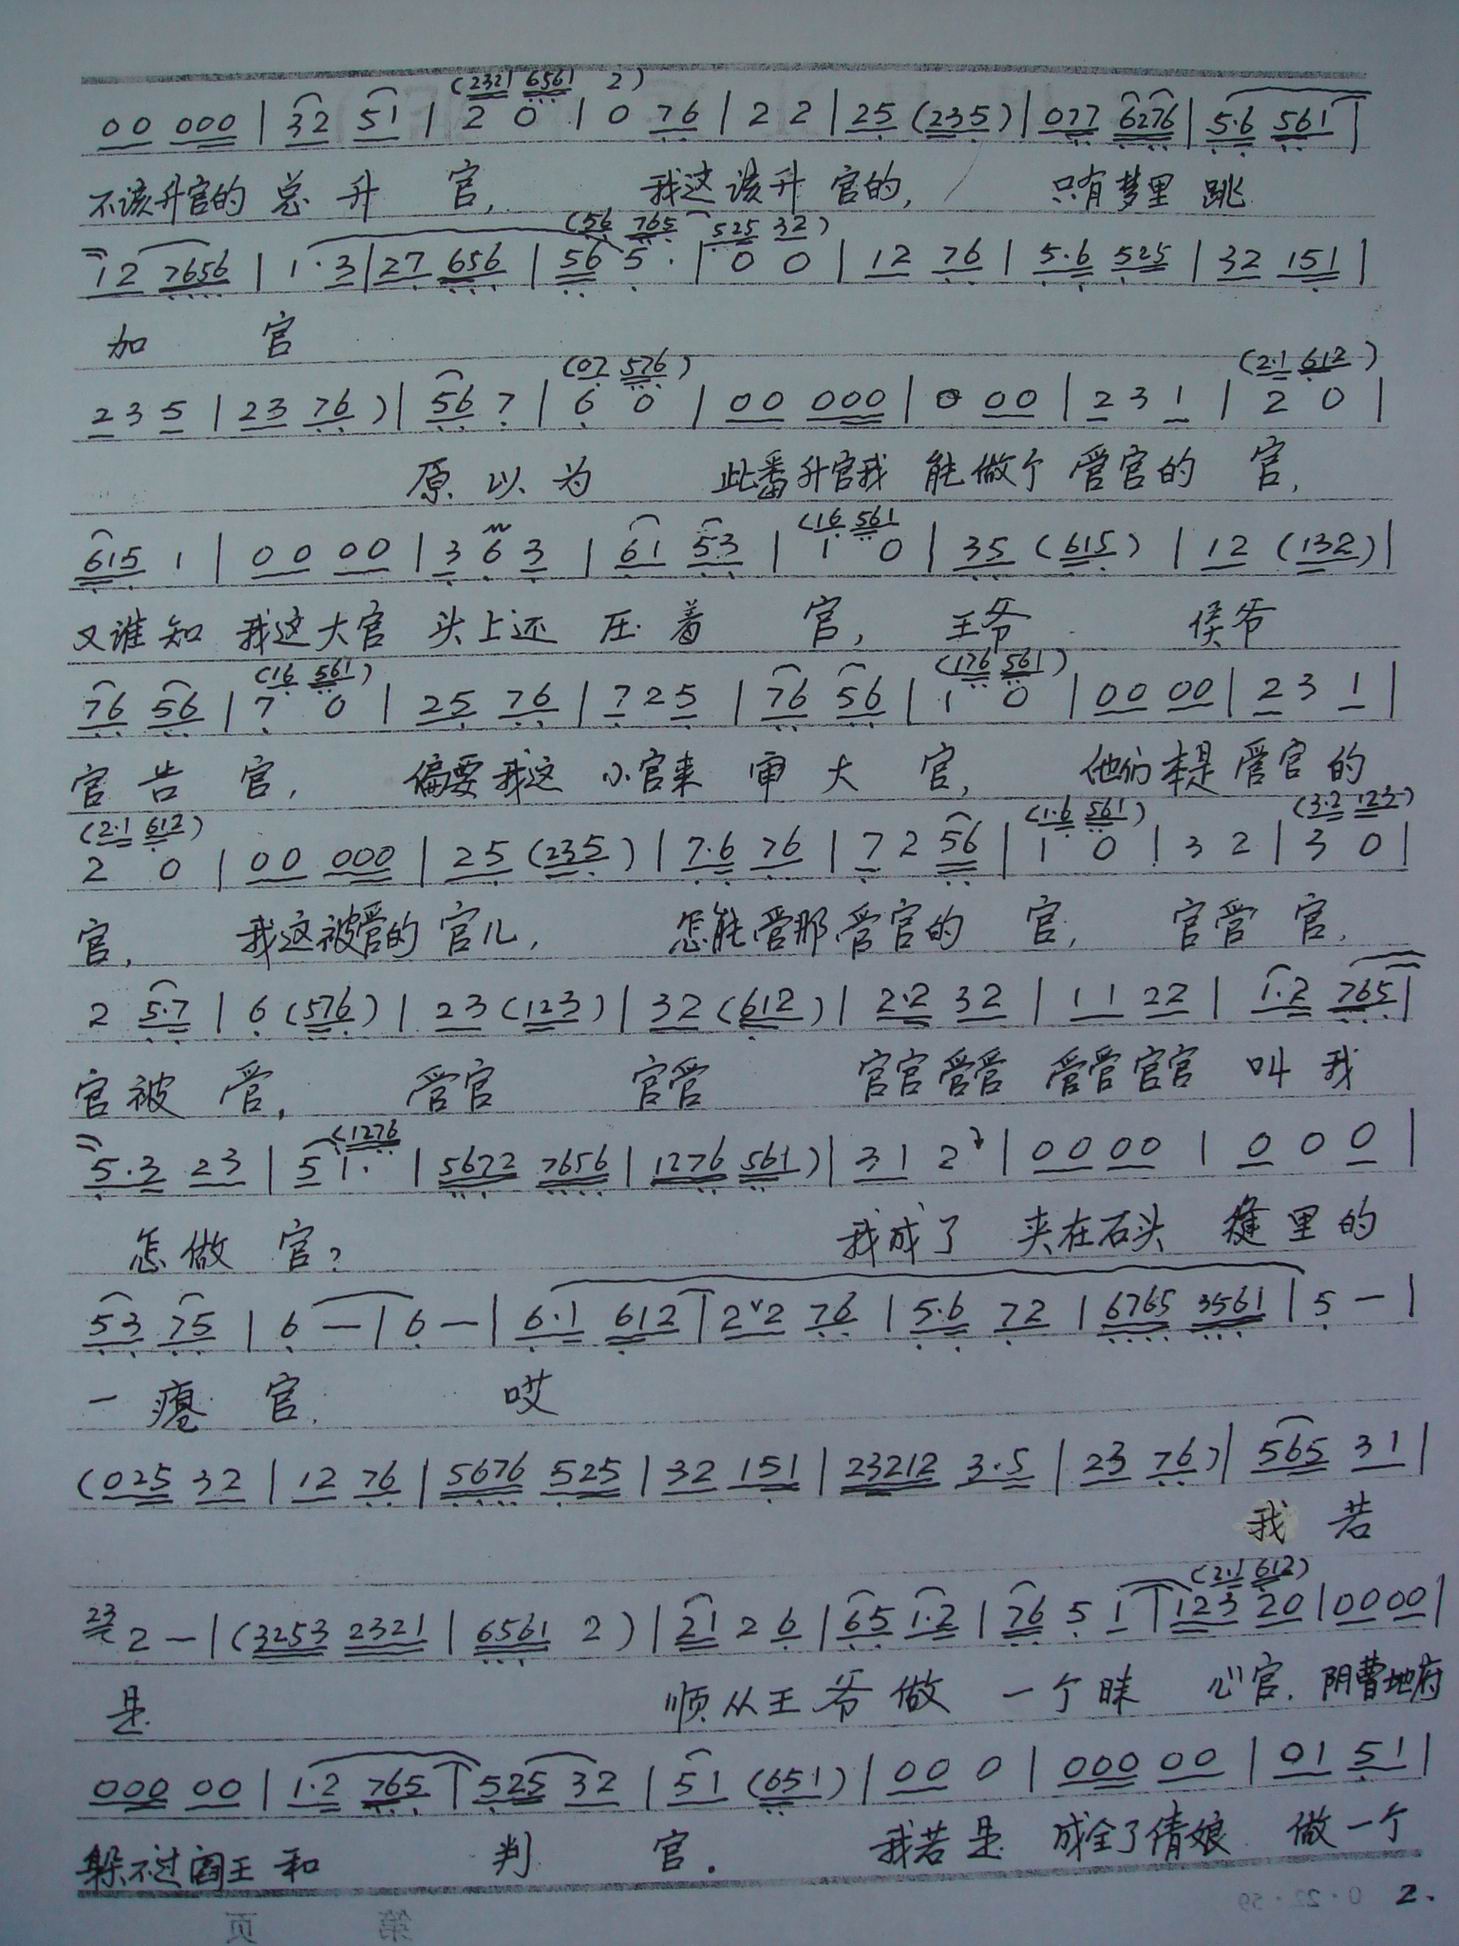 (2321 6561 2)
00 000 | 32 51 | 2 0 | 0 76 | 2 2 | 25 (235) | 077 6276 | 5·6 561 |
不该升官的 总 升 官, 我这该升 官的, 只有梦里 跳
(56 765 525 32)
12 7656 | 1·3 | 27 656 | 56 5· | 0 0 | 12 76 | 5·6 525 | 32 151 |
加 官
(07 576) (2·1 612)
2 3 5 | 23 76) | 56 7 | 6 0 | 00 000 | 0 00 | 2 3 1 | 2 0 |
原 以 为 此番升官我 能做个 管官的 官,
(16 561
615 1 | 00 00 | 3 6 3 | 61 53 | 1 0 | 35 (615) | 12 (132) |
又谁知 我这大官 头上还 压着 官, 王爷 侯爷
(16 561) (176 561)
76 56 | 7 0 | 25 76 | 7 2 5 | 76 56 | 1 0 | 00 00 | 2 3 1 |
官告 官, 偏要我这 小官来 审大 官, 他们本是 管官的
(2·1 612) (1·6 561) (3·2 123)
2 0 | 00 000 | 25 (235) | 7·6 76 | 7 2 56 | 1 0 | 3 2 | 3 0 |
官, 我这被管的 官儿, 怎能管那 管官的 官, 官管 官,
2 5·7 | 6 (576) | 23 (123) | 32 (612) | 2·2 32 | 11 22 | 1·2 765 |
官被 管, 管官 官管 官官管管 管管官官 叫我
(1276
5·3 23 | 5 1· | 5672 7656 | 1276 561) | 31 2 | 00 00 | 0 0 0 |
怎做 官? 我成了 夹在石头 缝里的
53 75 | 6 — | 6 — | 6·1 612 | 2ˇ2 76 | 5·6 72 | 6765 3561 | 5 — |
一瘪 官. 哎
(025 32 | 12 76 | 5676 525 | 32 151 | 23212 3·5 | 23 76) | 565 31 |
我 若
(2·1 612)
23 2 — | (3253 2321 | 6561 2) | 21 2 6 | 65 1·2 | 76 5 1 | 123 20 | 00 00 |
是 顺从王爷做 一个昧 心官. 阴曹地府
000 00 | 1·2 765 | 525 32 | 51 (651) | 00 0 | 000 00 | 01 51 |
躲不过阎王 和 判 官. 我若是 成全了倩娘 做一个
第 页
0·22·59
2.